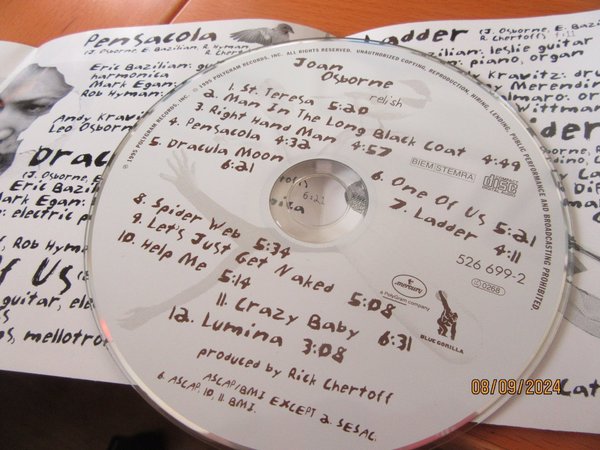 Pensacola
(J. Osborne, E. Bazilian, R. Hyman,
Eric Bazilian: guitar
harmonica
Mark Egan:
Rob Hyman:
Andy Kravitz
Leo Osborne
Drac
(J. Osborne,
Eric Bazilian
Mark Egan:
: electric p
, Rob Hyma
Of Us
guitar, ele
ps, mellotro
Ladder (J. Osborne, E. Bazi
R. Chertoff) 4:11
Bazilian: leslie guitar
: piano, organ
Kravitz: dru
almaro:
ider
Lat
© 1995 POLYGRAM RECORDS, INC. ALL RIGHTS RESERVED. UNAUTHORIZED COPYING, REPRODUCTION, HIRING, LENDING, PUBLIC PERFORMANCE AND BROADCASTING PROHIBITED.
℗ 1995 POLYGRAM RECORDS, INC.
Joan
Osborne
relish
1. St. Teresa 5:20
2. Man In The Long Black Coat 4:49
3. Right Hand Man 4:57
4. Pensacola 4:32
5. Dracula Moon
6:21
BIEM/STEMRA
COMPACT
disc
DIGITAL AUDIO
6. One Of Us 5:21
7. Ladder 4:11
526 699-2
6:21
8. Spider Web 5:34
9. Let's Just Get Naked 5:08
10. Help Me 5:14
11. Crazy Baby 6:31
12. Lumina 3:08
mercury
a PolyGram company
BLUE GORILLA
LC 0268
produced by Rick Chertoff
ASCAP/BMI EXCEPT 2. SESAC.
6. ASCAP. 10, 11. BMI.
08/09/2024